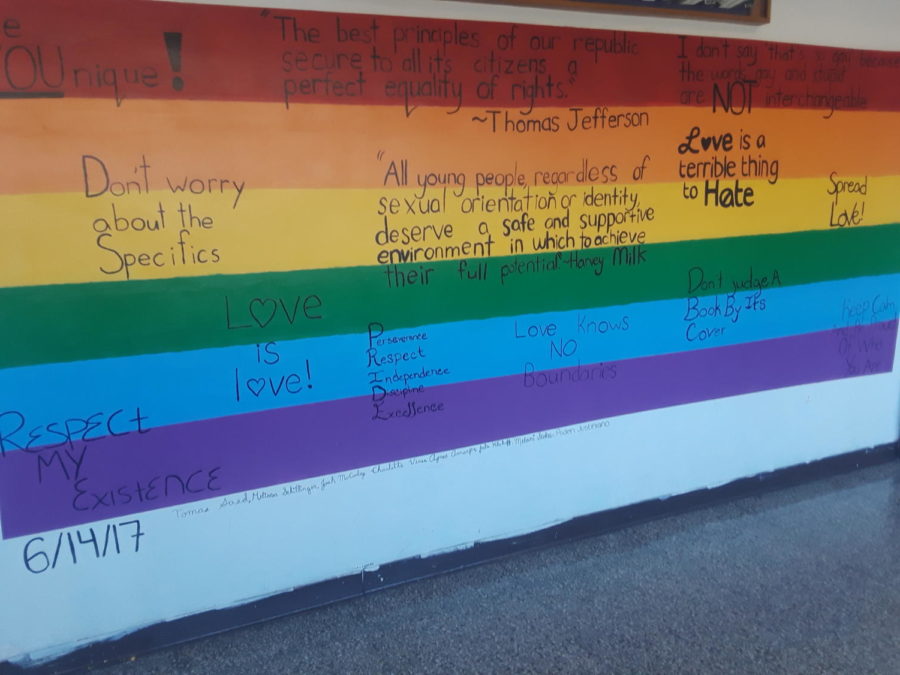 e
YOUnique!
"The best principles of our republic
secure to all its citizens a
perfect equality of rights."
~Thomas Jefferson
I don't say that's so gay because
the words gay and stupid
are NOT interchangeable
Don't worry
about the
Specifics
"All young people, regardless of
sexual orientation or identity,
deserve a safe and supportive
environment in which to achieve
their full potential."-Harvey Milk
Love is a
terrible thing
to Hate
Spread
Love!
Love
is
love!
Perseverance
Respect
Independence
Discipline
Excellence
Love Knows
NO
Boundaries
Don't judge A
Book By It's
Cover
Keep Calm
and Be Proud
Of Who
You Are
RESPECt
MY
ExistENCE
Tomas Saed, Melissa
6/14/17